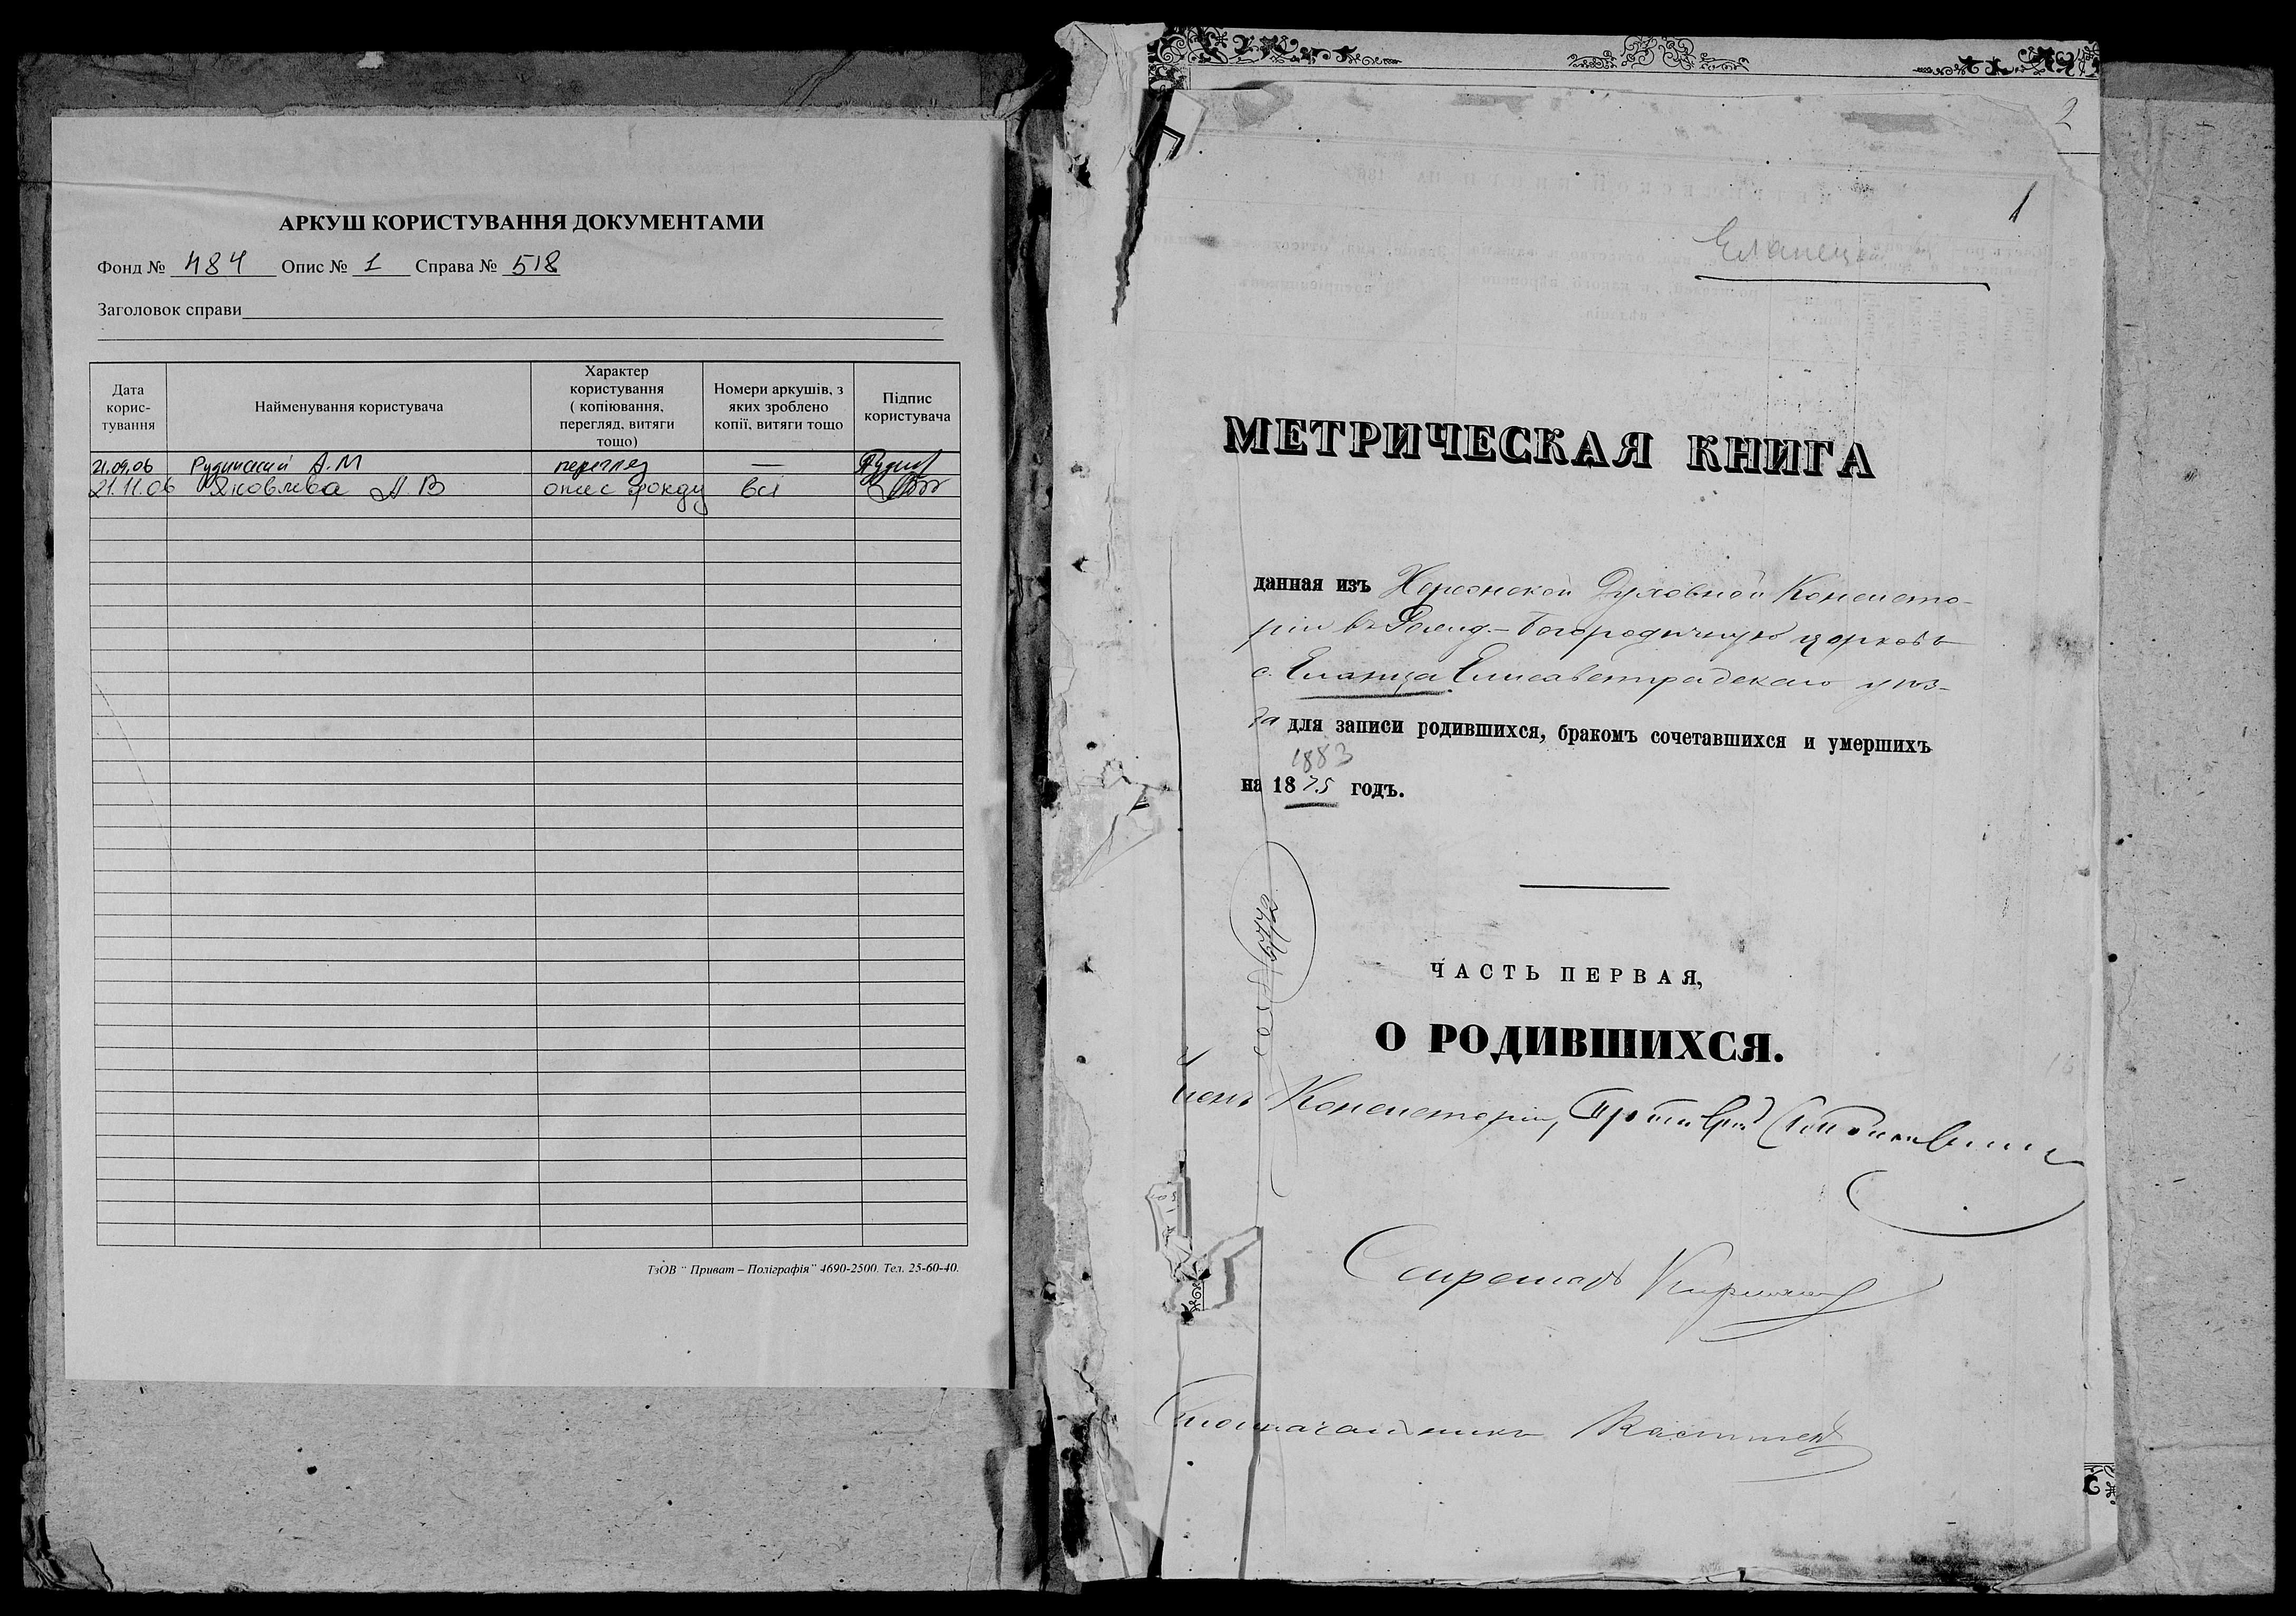 АРКУШ КОРИСТУВАННЯ ДОКУМЕНТАМИ
Фонд № 484 Опис № 1 Справа № 518
Заголовок справи
Дата корис-тування
Найменування користувача
Характер користування ( копіювання, перегляд, витяги тощо)
Номери аркушів, з яких зроблено копії, витяги тощо
Підпис користувача
21.09.06 А.М перегляд —
21.11.06 Яковлева А В опис фонду всі
ТзОВ “ Приват – Поліграфія” 4690-2500. Тел. 25-60-40.
2
1
Еланецк
МЕТРИЧЕСКАЯ КНИГА
данная изъ Херсонской Духовной Консисто-
ріи въ Рожд.-Богородичную церковь
с. Еланца Елисаветградскаго уѣз-
да для записи родившихся, бракомъ сочетавшихся и умершихъ
1883
на 1875 годъ.
ЧАСТЬ ПЕРВАЯ,
О РОДИВШИХСЯ.
Членъ Консисторіи,
Секретарь
Столоначальникъ